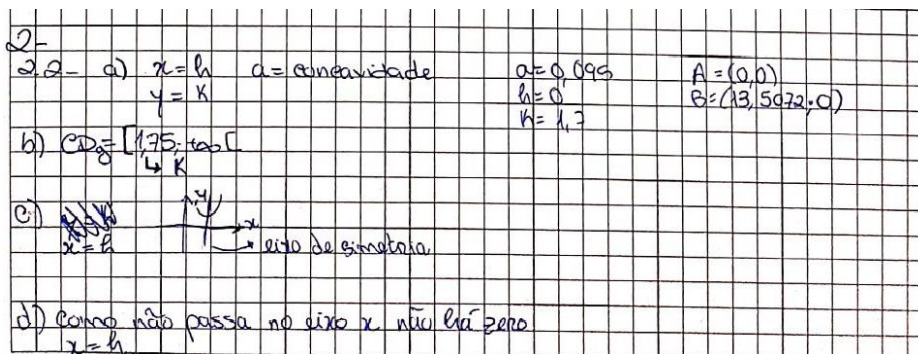 2-
2.2- a) x=h a=concavidade a=0,095 A=(0,0)
y=K h=0 B=(13,5072;0)
K=1,7
b) CDg=[1,75;+∞[
↳ K
c)
y
x=h x
eixo de simetria
d) Como não passa no eixo x não há zero
x=h